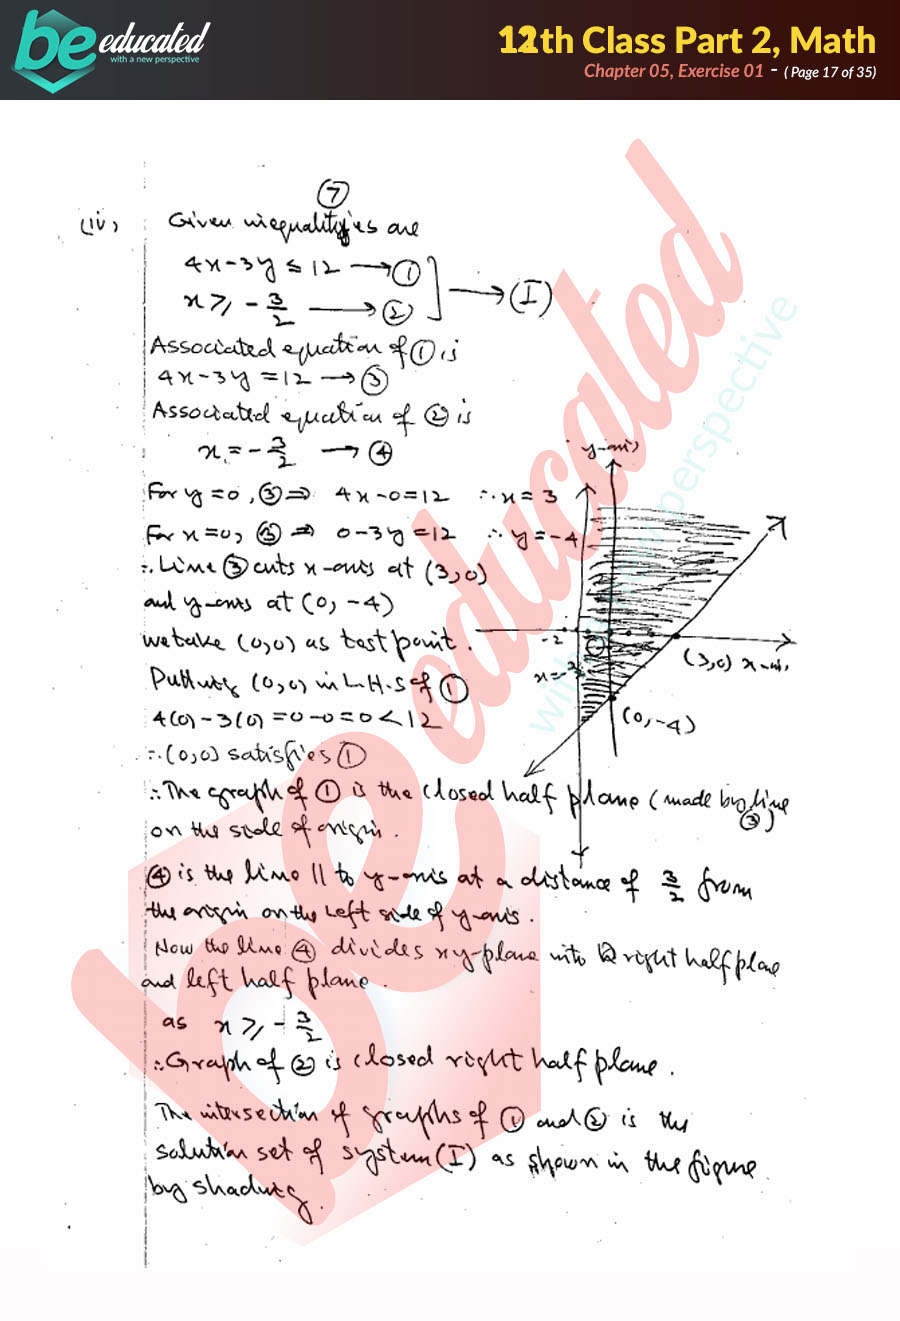 be educated
with a new perspective
12th Class Part 2, Math
Chapter 05, Exercise 01 - ( Page 17 of 35)
⑦
(iv) Given inequalities are
4x-3y ≤ 12 → ①
x ≥ -3/2 → ②
→ (I)
Associated equation of ① is
4x-3y = 12 → ③
Associated equation of ② is
x = -3/2 → ④
For y=0, ③ ⇒ 4x-0=12 ∴ x = 3
For x=0, ③ ⇒ 0-3y=12 ∴ y=-4
∴ Line ③ cuts x-axis at (3,0)
and y-axis at (0,-4)
we take (0,0) as test point.
Putting (0,0) in L.H.S of ①
4(0)-3(0) = 0-0=0<12
∴ (0,0) satisfies ①
∴ The graph of ① is the closed half plane (made by line
③)
on the side of origin.
④ is the line || to y-axis at a distance of 3/2 from
the origin on the left side of y-axis.
Now the line ④ divides xy-plane into right half plane
and left half plane.
as x ≥ -3/2
∴ Graph of ② is closed right half plane.
The intersection of graphs of ① and ② is the
solution set of system (I) as shown in the figure
by shading.
y-axis
-2
x=-3/2
(3,0) x-axis
(0,-4)
be educated
with a new perspective